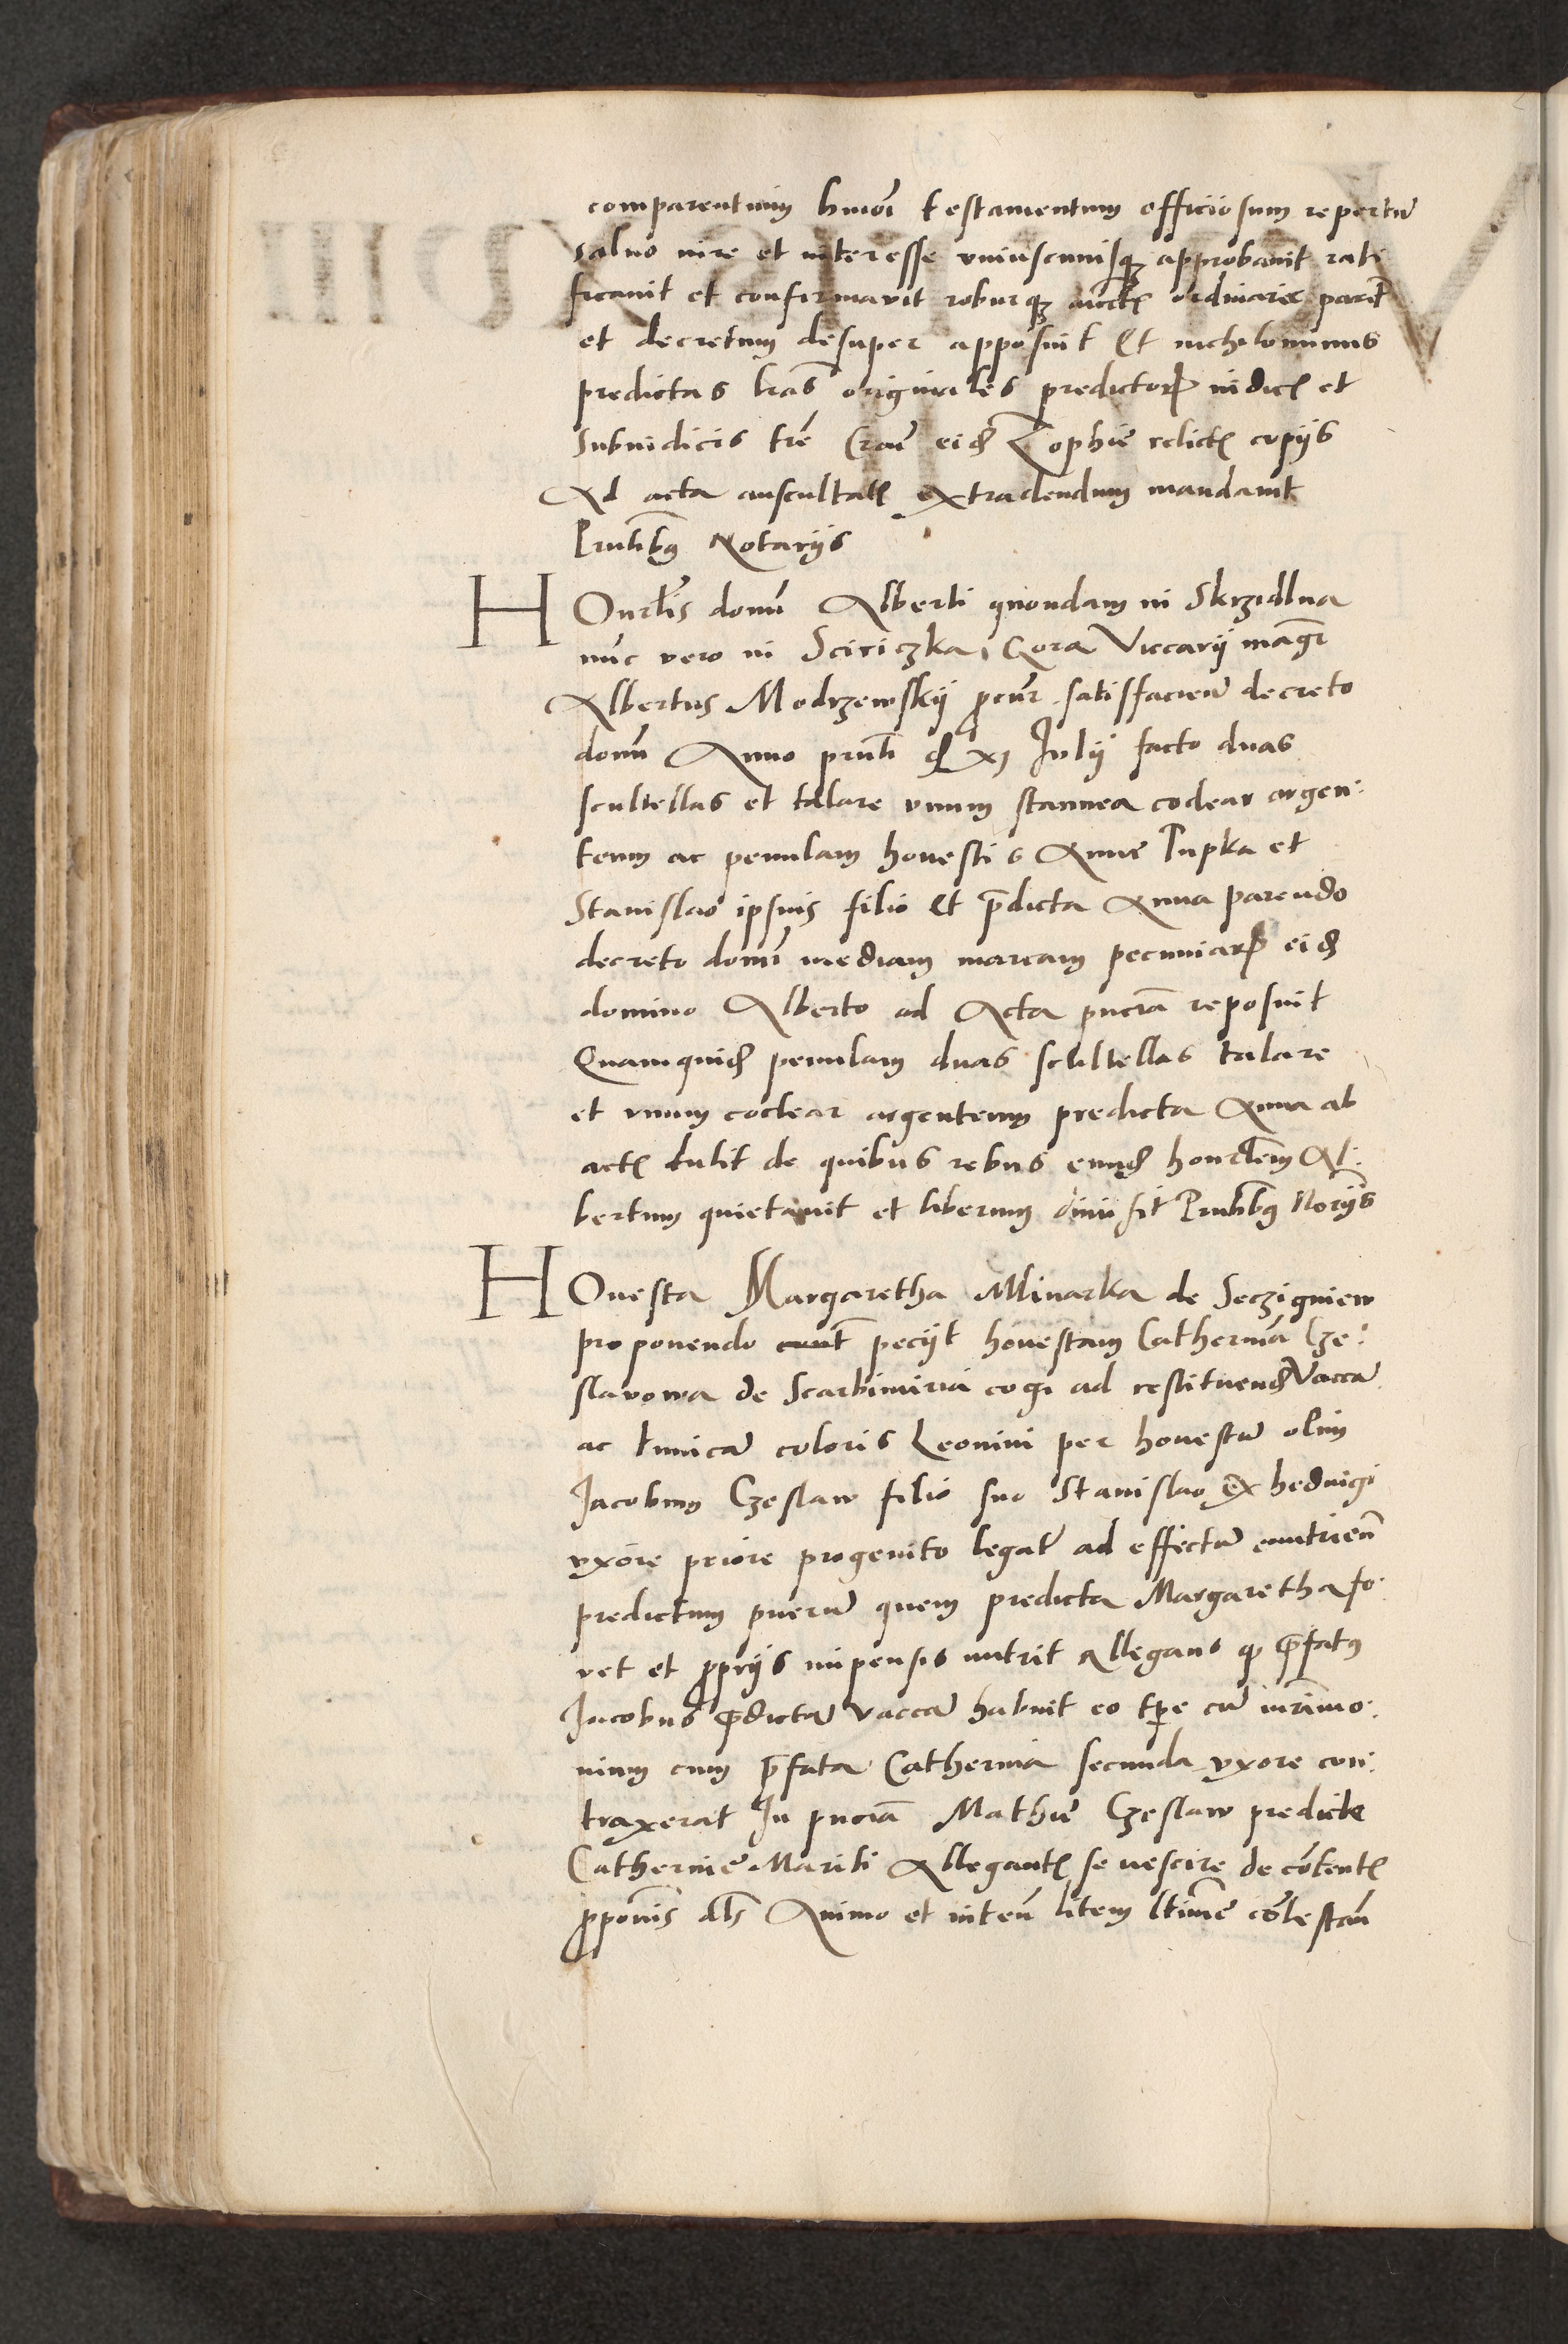 comparentium hmoi testamentum officiosum repertu
salvo iure et interesse uniuscuiusq approbavit rati
ficavit et confirmavit roburq aucte ordinarie parit
et decretum desuper apposuit Et nichilominus
predictas lras originales predictor iudicis et
Subiudicis tre Crac eid Zophie relictis copiis
Ad acta auscultatis extradendum mandavit
Pntibus Notariis
HOnrlis domi Alberti quondam in Skrzidlna
nuc vero in Sciriczka Gora Viccarii magr
Albertus Modrzewskij pcur satisfaciens decreto
domi Anno pnti d xj Julij facto duas
scultellas et talare unum stannea coclear argen
teum ac penulam honestis Anne Pupka et
Stanislao ipsius filio Et pdicta Anna parendo
decreto domi mediam marcam pecuniar eid
domino Alberto ad Acta pncia reposuit
Quamquid penulam duas scultellas talare
et unum coclear argenteum predicta Anna ab
actis tulit de quibus rebus eumd honrlem Al
bertum quietavit et liberum dimisit Pntibus Noriis
HOnesta Margaretha Mlinarka de Seczigniew
proponendo peciit honestam Catherina Cze
slavowa de Scarbimiria cogi ad restituend Vacca
ac tunica coloris Leonini per honestu olim
Jacobum Czeslaw filio suo Stanislao ex hedvigi
uxore priore progenito legat ad effectu enutriend
predictum pueru quem predicta Margaretha fo
vet et propriis impensis nutrit Allegans q prefatus
Jacobus predicta vacca habuit eo tpe cu mrimo
nium cum pfata Catherina secunda uxore con
traxerat In pncia Mathie Czeslaw predicte
Catherine Mariti Allegantis se nescire de contentis
proponis als Animo et inten litem ltime contestan